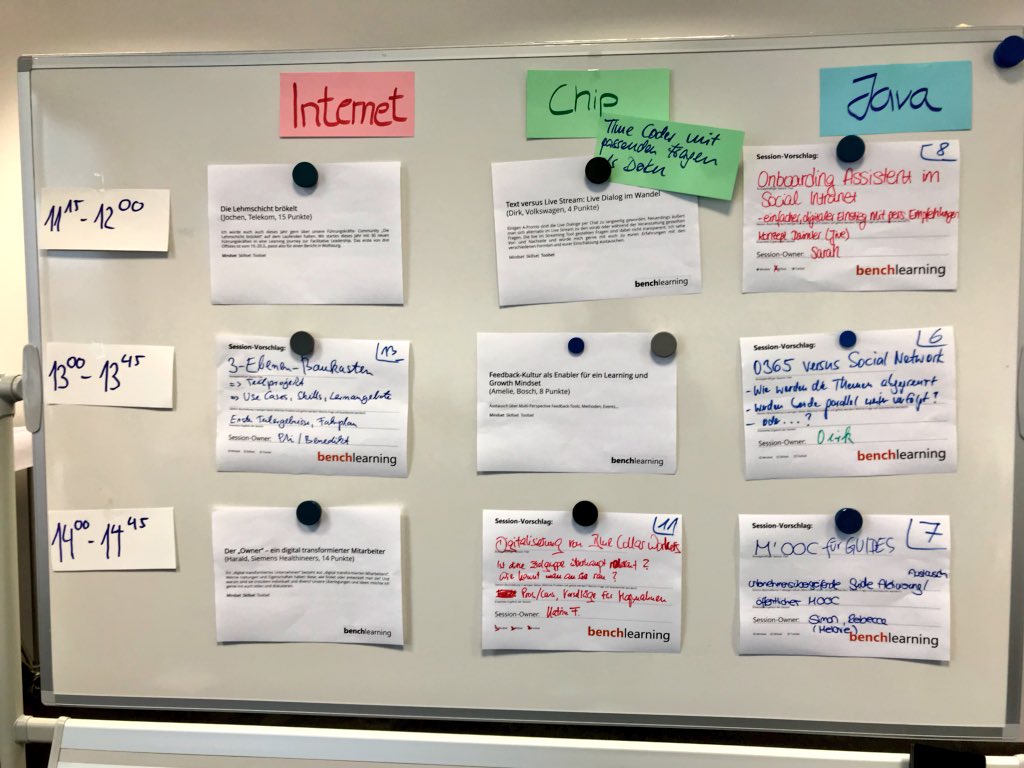 Internet
Chip
Java
Time Codes mit
passenden Fragen
als Doku
11 15 - 12 00
Die Lehmschicht bröckelt
(Jochen, Telekom, 15 Punkte)
Mindset Skillset Toolset
Text versus Live Stream: Live Dialog im Wandel
(Dirk, Volkswagen, 4 Punkte)
Mindset Skillset Toolset
benchlearning
Session-Vorschlag:
8
Onboarding Assistent im
Social Intranet
- einfacher, digitaler Einstieg mit pers. Empfehlungen
Konzept Daimler (Jive)
Session-Owner: Sarah
benchlearning
13 00 - 13 45
Session-Vorschlag:
13
3-Ebenen-Baukasten
=> Teilprojekt
=> Use Cases, Skills, Lernangebote
Erste Teilergebnisse, Fahrplan
Session-Owner: Phi / Benedikt
benchlearning
Feedback-Kultur als Enabler für ein Learning und
Growth Mindset
(Amelie, Bosch, 8 Punkte)
Austausch über Multi-Perspective Feedback-Tools, Methoden, Events...
Mindset Skillset Toolset
benchlearning
Session-Vorschlag:
6
O365 versus Social Network
- Wie werden die Themen abgegrenzt
- werden beide parallel weiter verfolgt?
- oder ...?
Session-Owner: Dirk
benchlearning
14 00 - 14 45
Der „Owner“ – ein digital transformierter Mitarbeiter
(Harald, Siemens Healthineers, 14 Punkte)
Mindset Skillset Toolset
benchlearning
Session-Vorschlag:
11
Digitalisierung von Blue Collar Workers
Ist eine Zielgruppe überhaupt relevant?
Wie kommt man an sie ran?
Pros/Cons, Vorschläge für Maßnahmen
Session-Owner: Katrin F.
benchlearning
Session-Vorschlag:
7
M'OOC für GUIDES
Austausch
unternehmensübergreifende Guide Aktivierung/
öffentlicher MOOC
Session-Owner: Simon, Rebecca
(Melanie)
benchlearning